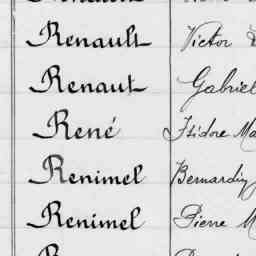 Renault Victor
Renaut Gabriel
René Isidore Ma
Renimel Bernardin
Renimel Pierre M